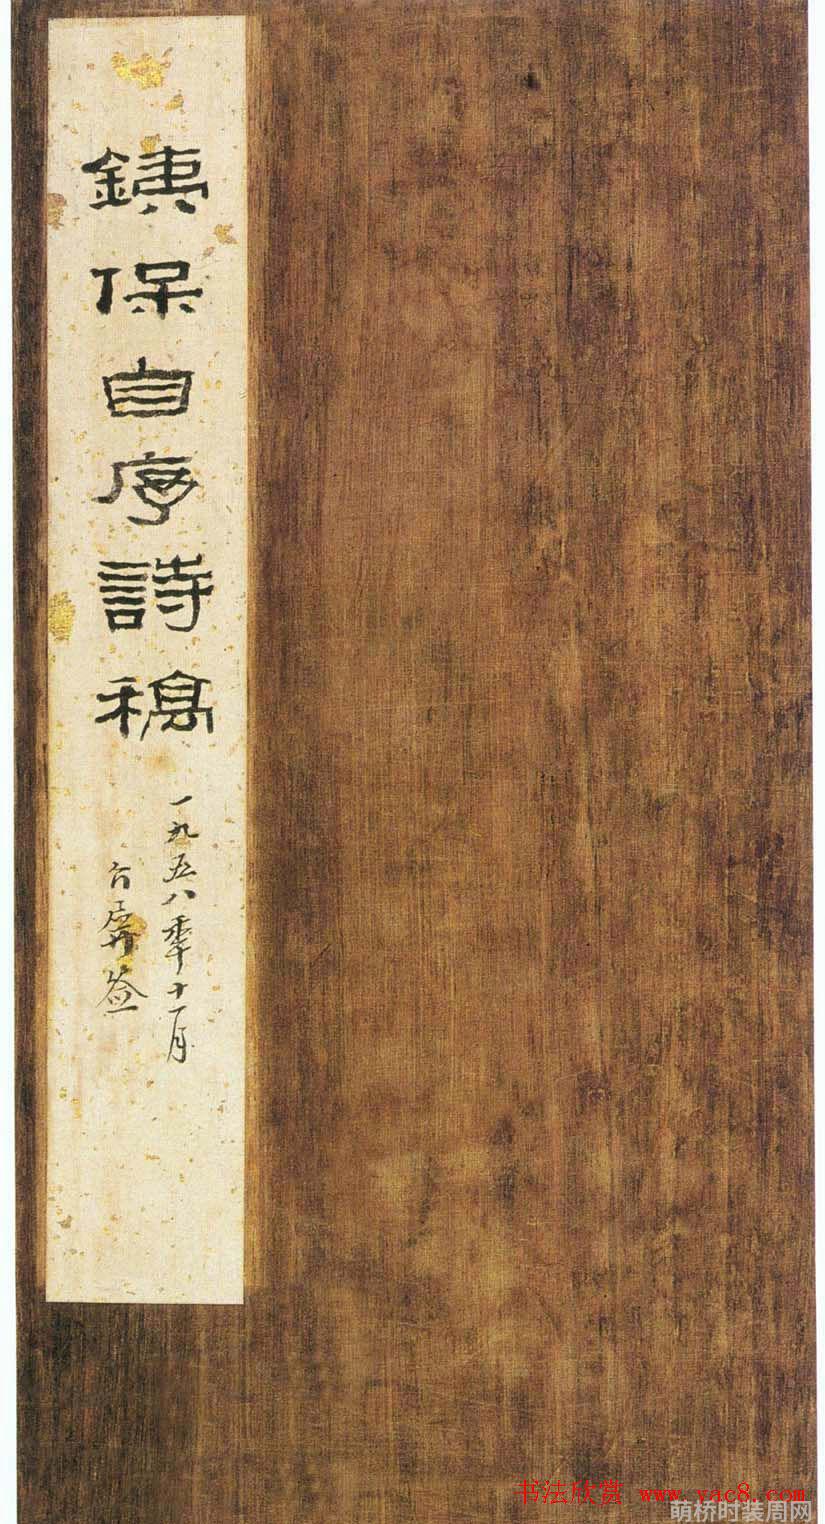 銕保自序詩稿
一九五八年十一月
签
书法欣赏 www.yac8.com
萌桥时装周网